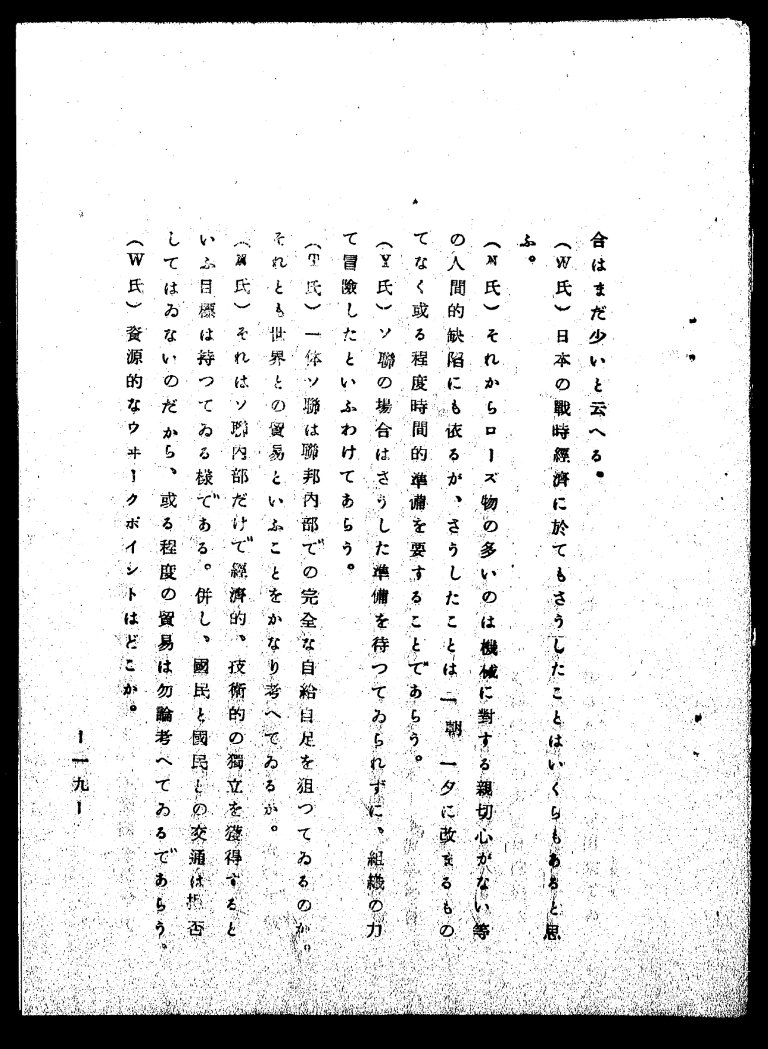 合はまだ少いと云へる。
(W氏)日本の戰時經濟に於てもさうしたことはいくらもあると思
ふ。
(M氏)それからローズ物の多いのは機械に對する親切心がない等
の人間的缺陷にも依るが、さうしたことは一朝一夕に改まるもの
でなく或る程度時間的準備を要することであらう。
(Y氏)ソ聯の場合はさうした準備を待つてゐられずに、組織の力
で冒險したといふわけであらう。
(T氏)一体ソ聯は聯邦内部での完全な自給自足を狙つてゐるのか。
それとも世界との貿易といふことをかなり考へてゐるか。
(M氏)それはソ聯内部だけで經濟的、技術的の獨立を獲得すると
いふ目標は持つてゐる樣である。併し、國民と國民との交通は拒否
してはゐないのだから、或る程度の貿易は勿論考へてゐるであらう。
(W氏)資源的なウヰークポイントはどこか。
ー一九ー